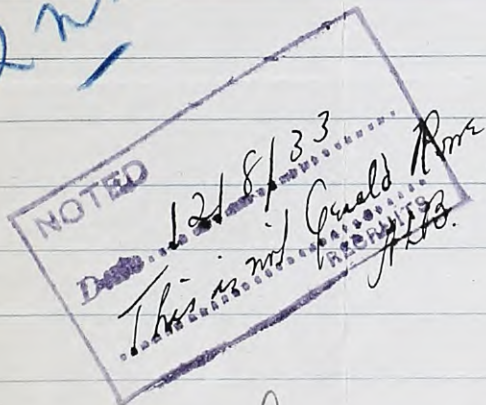 NOTED
Date 12/8/33
This is not Gerald
RECRUITS